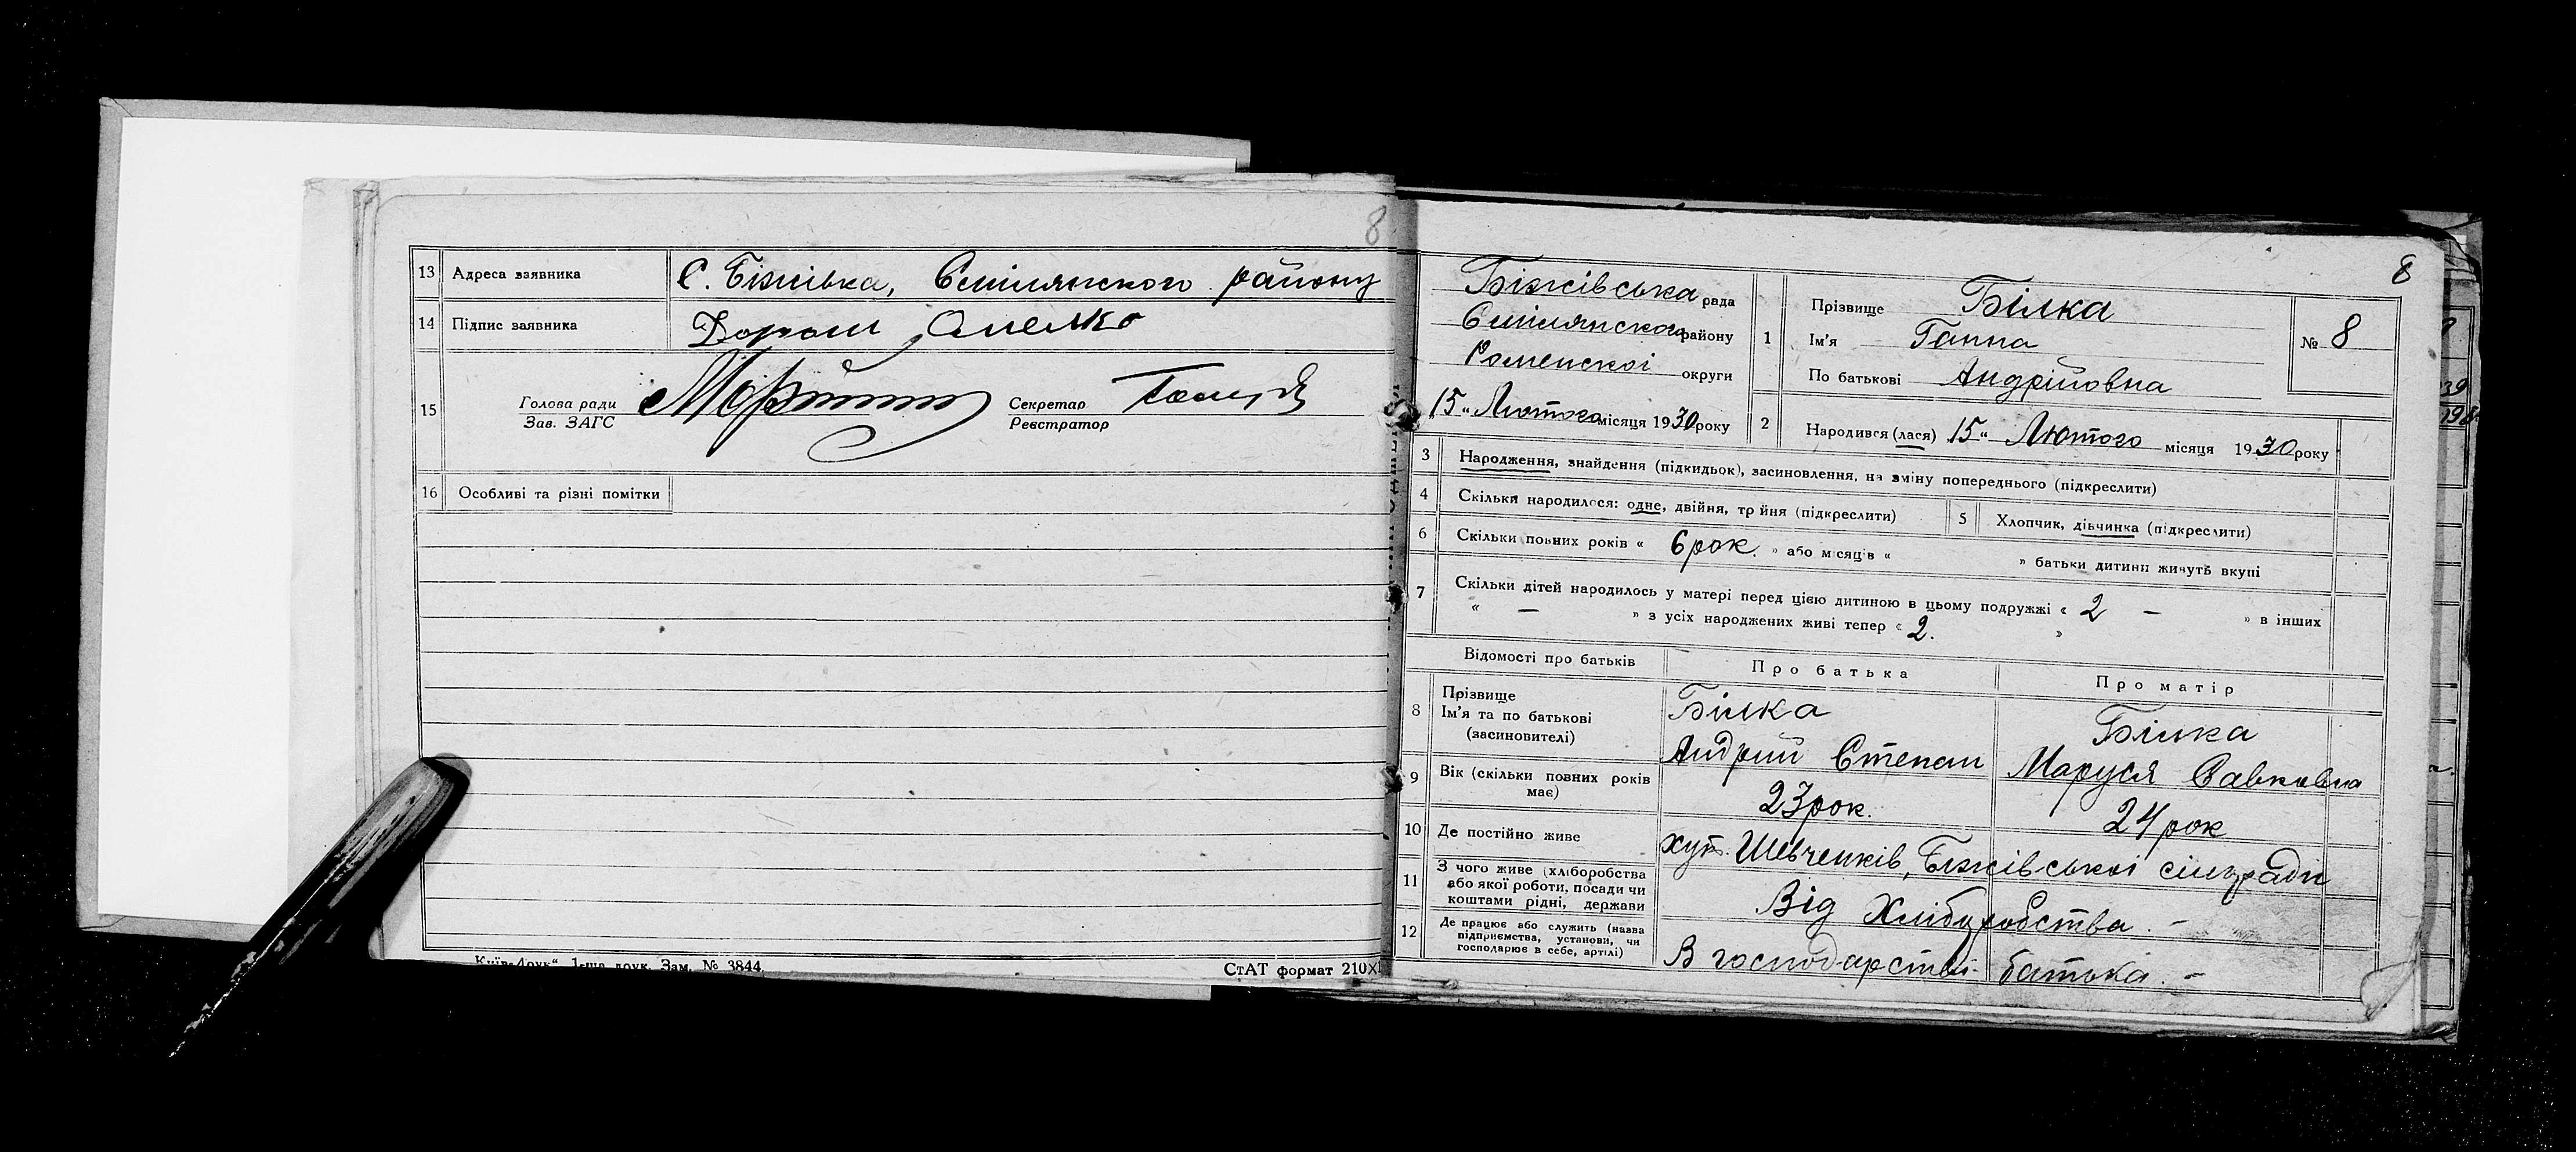 8
13 Адреса взявника С. Біжівка, Смілянского району
14 Підпис заявника Дорош Омелко
15 Голова ради Секретар
Зав. ЗАГС Реєстратор
16 Особливі та різні помітки
Київ-Друк“, 1-ша друк. Зам. № 3844
СтАТ формат 210X
8
Біжівська рада
Смілянского району
Роменскоі округи
15 „ Лютого місяця 1930 року
1 Прізвище Білка
Ім'я Ганна
По батькові Андрійовна
№ 8
2 Народився (лася) 15 „ Лютого місяця 1930 року
3 Народження, знайдення (підкидьок), засиновлення, на зміну попереднього (підкреслити)
4 Скільки народилося: одне, двійня, трійня (підкреслити) 5 Хлопчик, дівчинка (підкреслити)
6 Скільки повних років « 6 рок. » або місяців « » батьки дитини живуть вкупі
7 Скільки дітей народилось у матері перед цією дитиною в цьому подружжі « 2 — » в інших
« — » з усіх народжених живі тепер « 2. »
Відомості про батьків Про батька Про матір
8 Прізвище Ім'я та по батькові (засиновителі)
Білка Андрий Степан
Білка Маруся Савковна
9 Вік (скільки повних років має) 23 рок. 24 рок
10 Де постійно живе хут. Шевченків, Біжівськоі сільради
11 З чого живе (хліборобства або якої роботи, посади чи коштами рідні, держави Від Хліборобства. —
12 Де працює або служить (назва підприємства, установи, чи господарює в себе, артілі) В господарстві батька. —